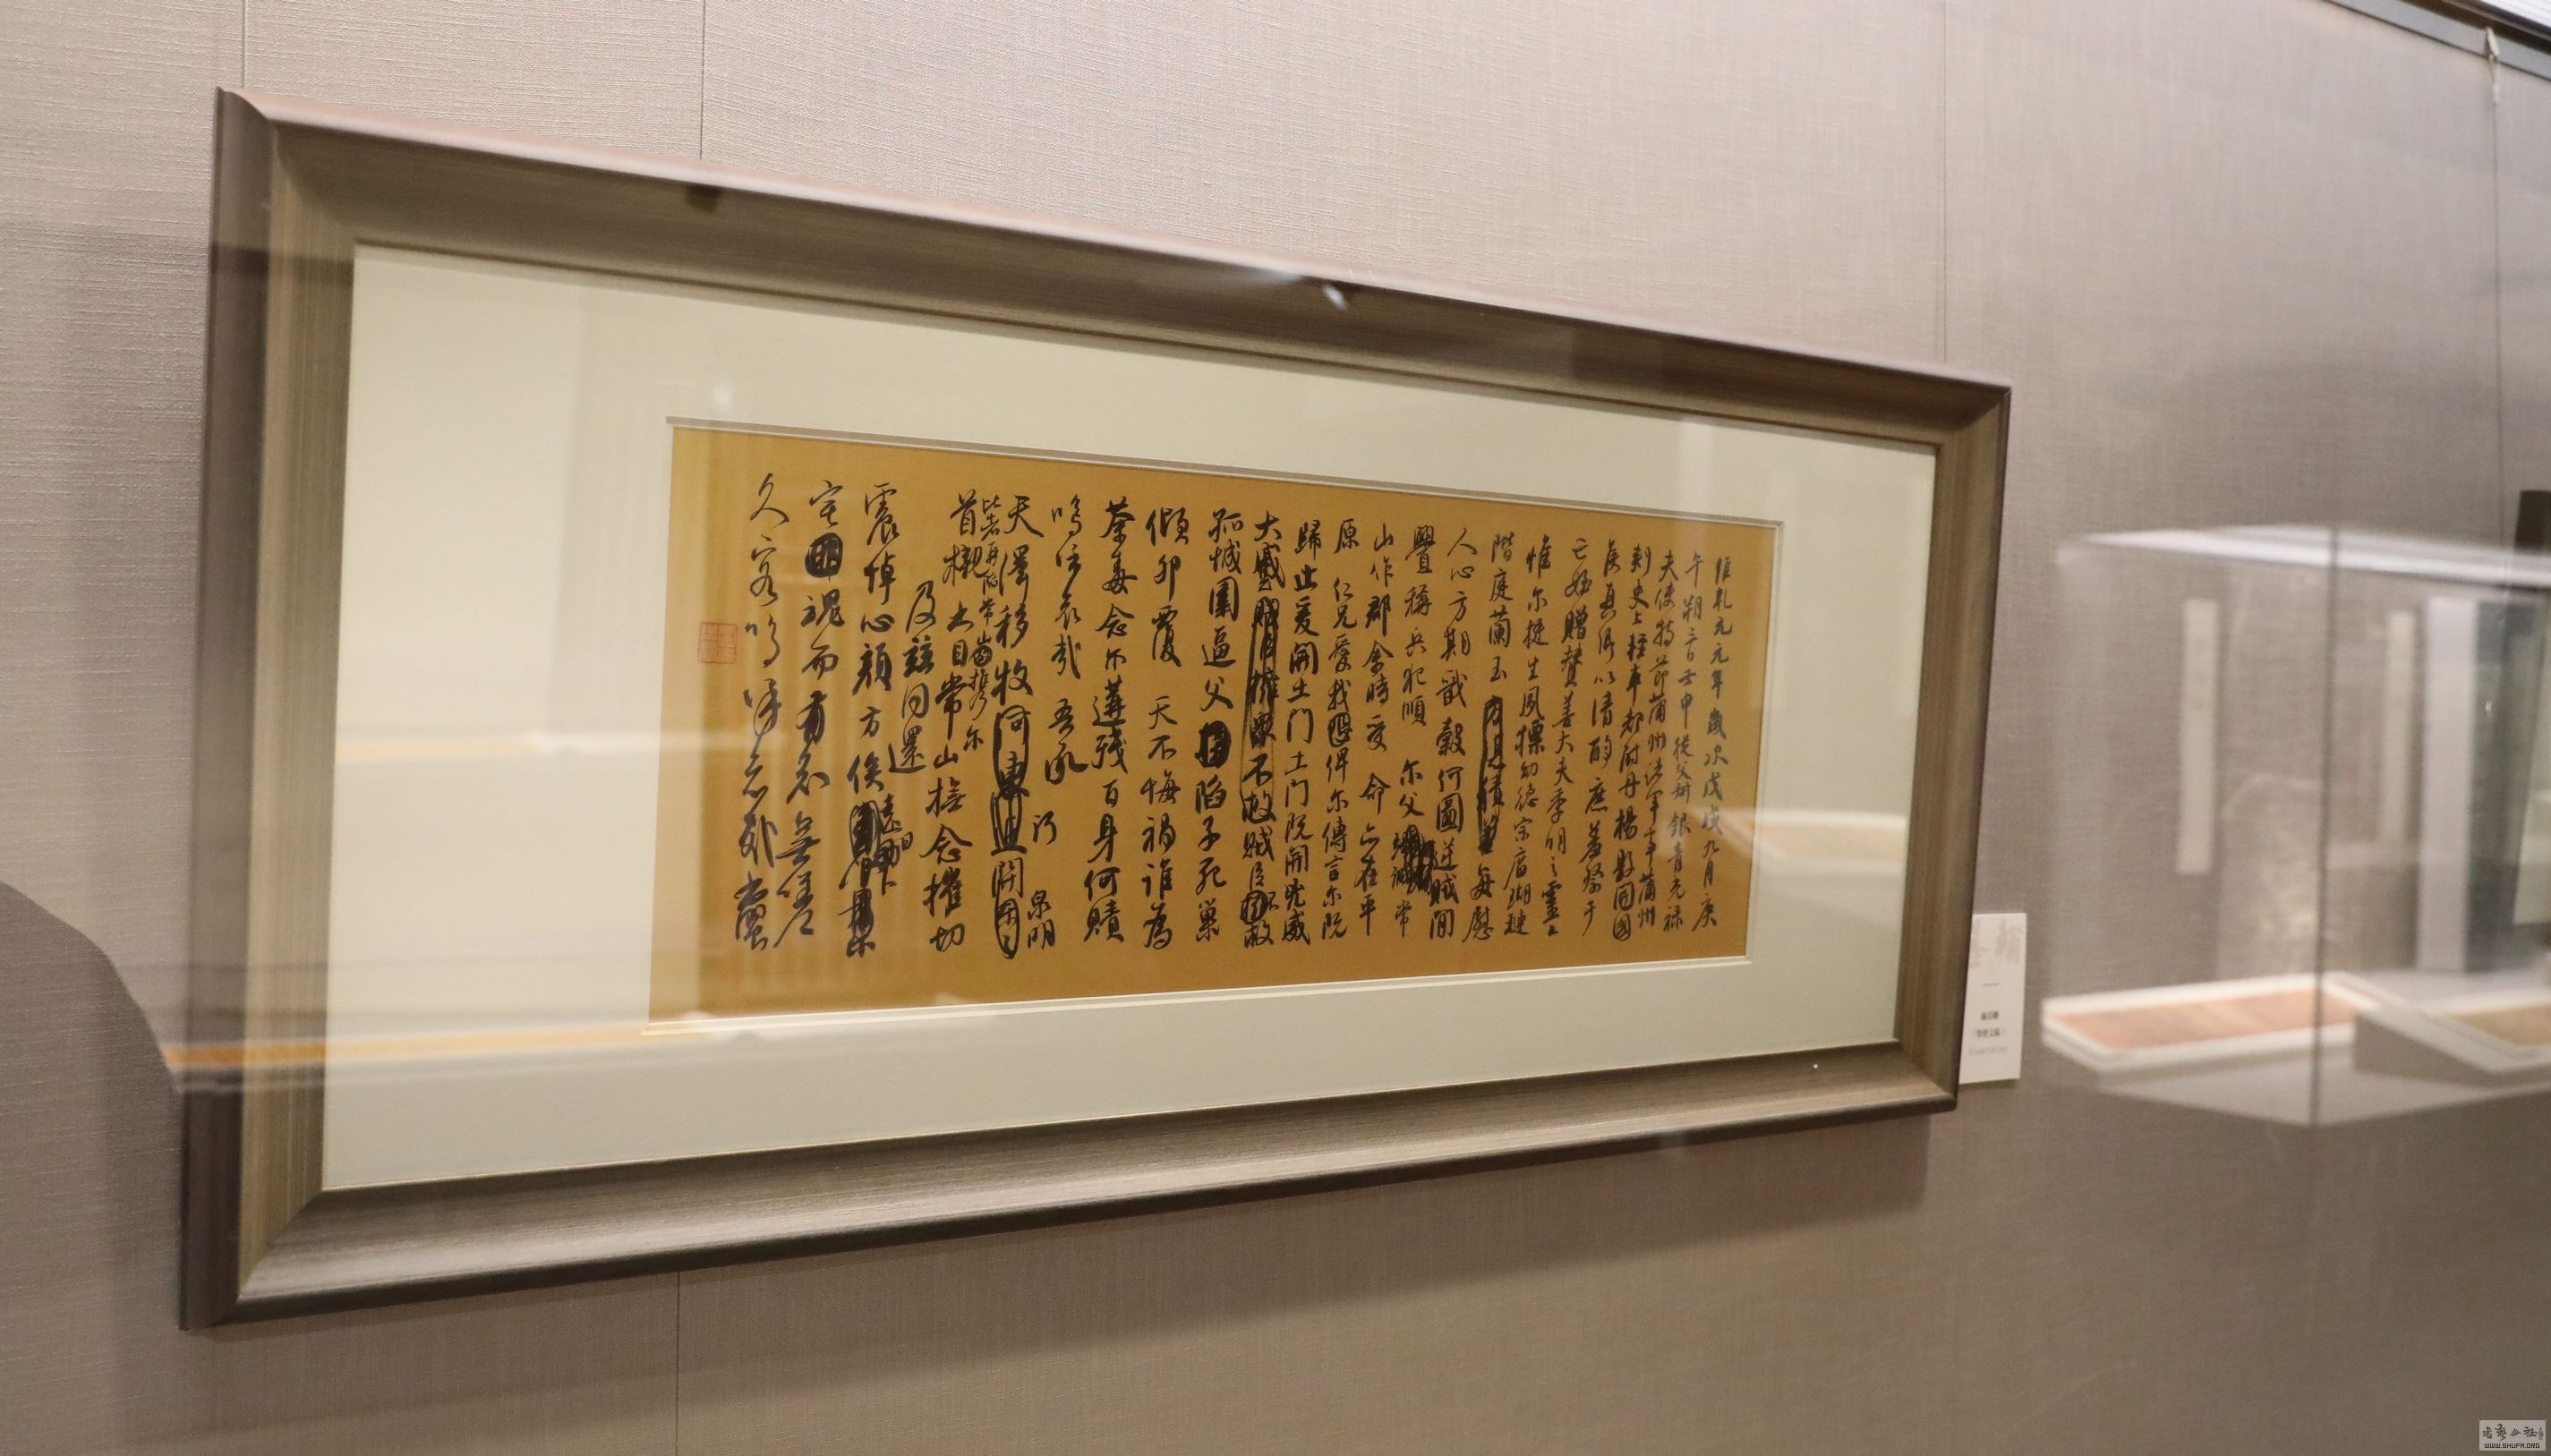 惟乾元元年歲次戊戌九月庚
午朔三日壬申從父銀青光祿
夫使持節蒲州諸軍事蒲州
刺史上輕車都尉丹楊縣開國
侯真卿以清酌庶羞祭于
亡姪贈贊善大夫季明之靈曰
惟尔挺生夙標幼德宗廟瑚璉
階庭蘭玉每慰
人心方期戩穀何圖逆賊間
釁稱兵犯順尔父竭誠常
山作郡余時受命亦在平
原仁兄愛我俾尔傳言尔既
歸止爰開土門土門既開凶威
大蹙賊臣不救
孤城圍逼父陷子死巢
傾卵覆天不悔禍誰為
荼毒念尔遘殘百身何贖
嗚呼哀哉吾承
天澤移牧河關泉明
比者再陷常山攜尔
首櫬及茲同還
撫念摧切
震悼心顏方俟遠日卜
宅魂而有知無嗟
久客嗚呼哀哉尚饗
WWW.SHUFA.ORG